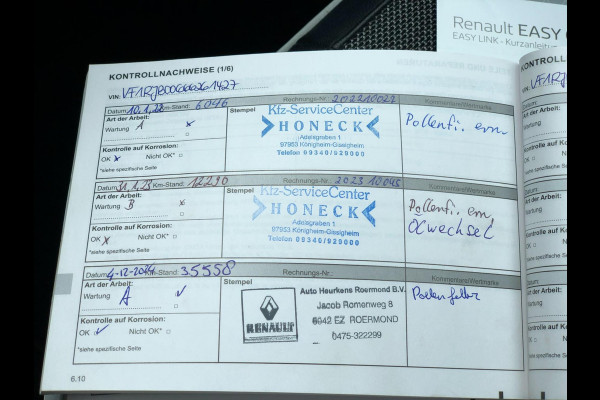 Renault EASY
EASY LINK - Kurzanleitung
KONTROLLNACHWEISE (1/6)
VIN:
Datum: 10.1.22 Km-Stand: 6046
Stempel
Rechnungs-Nr.: 202210022
Kommentare/Wertmarke
Art der Arbeit:
Wartung A x
Kontrolle auf Korrosion:
OK x Nicht OK* □
*siehe spezifische Seite
Kfz-ServiceCenter
HONECK
Adelsgraben 1
97953 Königheim-Gissigheim
Telefon 09340/929000
Pollenfi. ern.
Datum: 31.1.23 Km-Stand: 12290
Stempel
Rechnungs-Nr.: 202310045
Kommentare/Wertmarke
Art der Arbeit:
Wartung B x
Kontrolle auf Korrosion:
OK x Nicht OK* □
*siehe spezifische Seite
Kfz-ServiceCenter
HONECK
Adelsgraben 1
97953 Königheim-Gissigheim
Telefon 09340/929000
Pollenfi. ern,
Ölwechsel
Datum: 4-12-2024 Km-Stand: 35558
Stempel
Rechnungs-Nr.:
Kommentare/Wertmarke
Art der Arbeit:
Wartung A
Kontrolle auf Korrosion:
OK Nicht OK* □
*siehe spezifische Seite
RENAULT
Auto Heurkens Roermond B.V.
Jacob Romenweg 8
6042 EZ ROERMOND
0475-322299
6.10